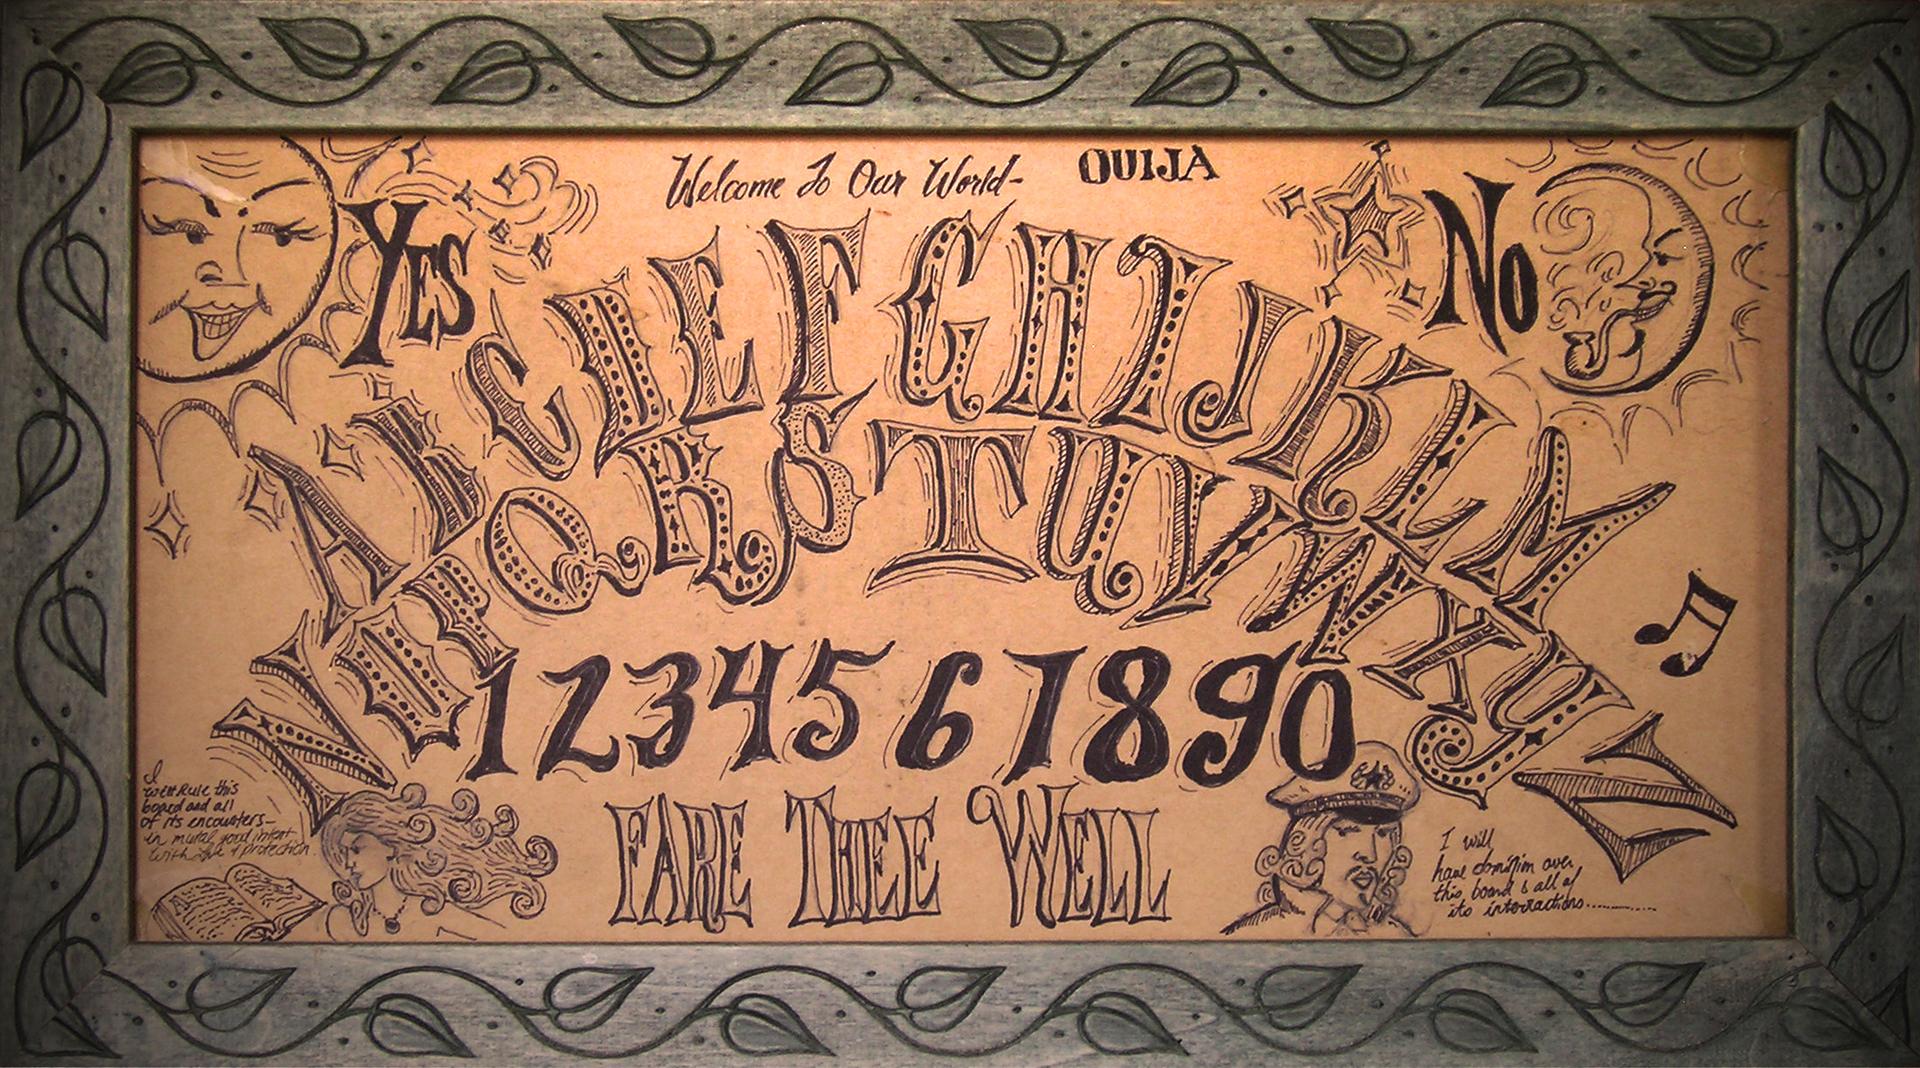 Welcome To Our World-
OUIJA
YES
NO
ABCDEFGHIJKLM
NOPQRSTUVWXYZ
1234567890
FARE THEE WELL
I
will Rule this
board and all
of its encounters-
in mutal good intent
with love & protection.
I will
have dominion over
this board & all of
its interractions............